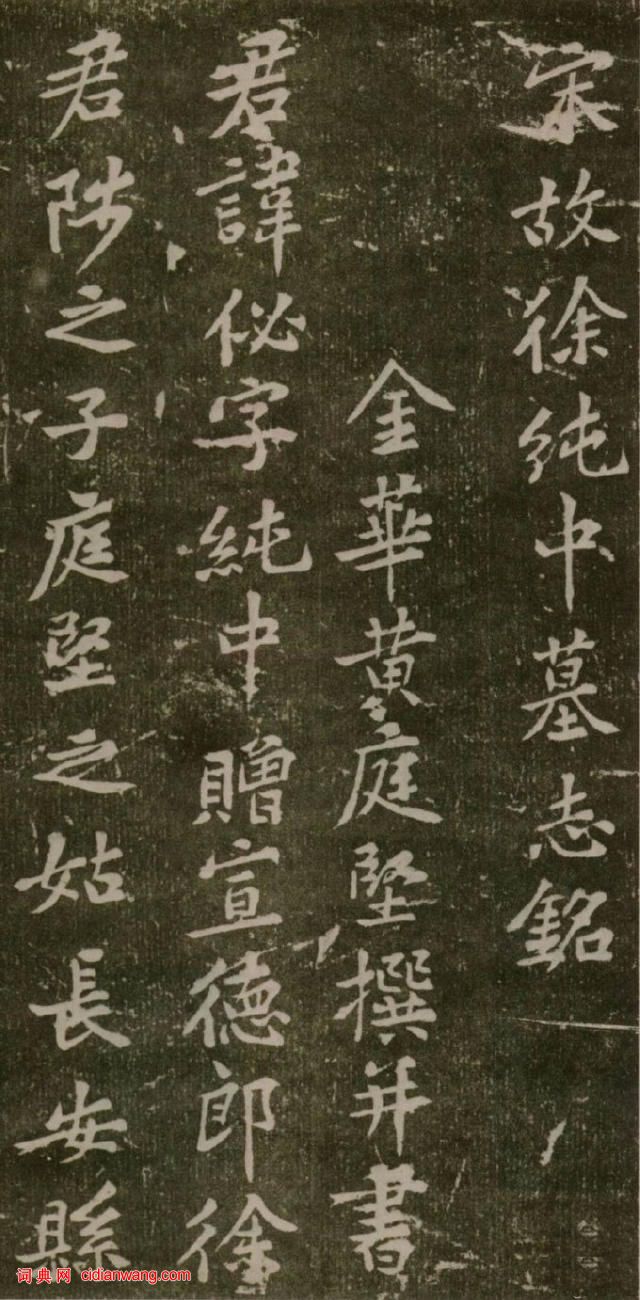 宋故徐純中墓志銘
金華黃庭堅撰并書
君諱佖字純中贈宣德郎徐
君陟之子庭堅之姑長安縣
词典网 cidianwang.com